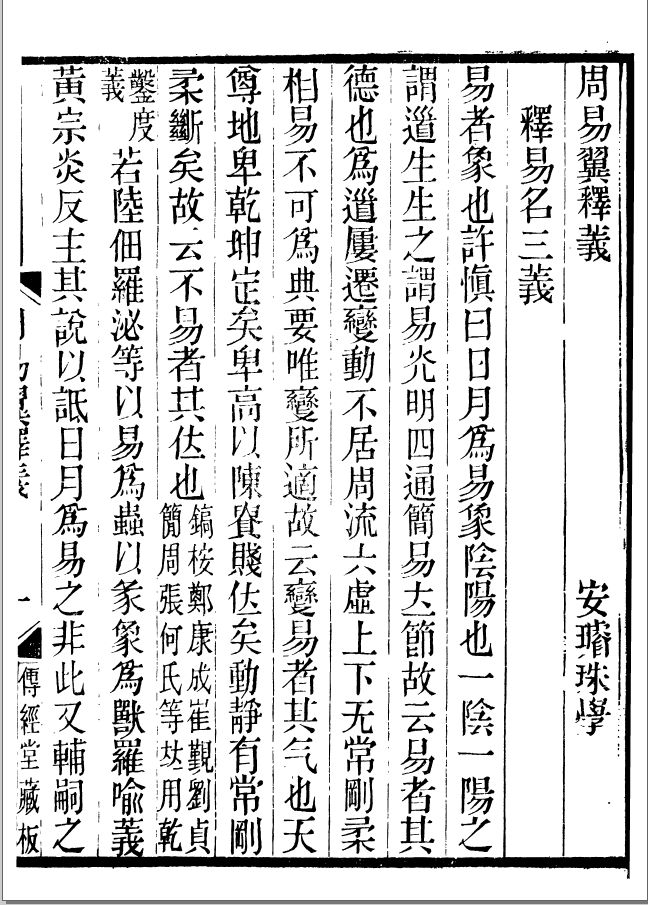 周易翼釋義　安璿珠學
釋易名三義
易者象也許慎曰日月為易象陰陽也一陰一陽之
謂道生生之謂易光明四通簡易立節故云易者其
德也為道屢遷變動不居周流六虛上下无常剛柔
相易不可為典要唯變所適故云變易者其气也天
尊地卑乾坤定矣卑高以陳貴賤位矣動靜有常剛
柔斷矣故云不易者其位也鎬桉鄭康成崔覲劉貞
簡周張何氏等𠀤用乾
鑿度
義若陸佃羅泌等以易為蟲以彖象為獸羅喻義
黃宗炎反主其說以詆日月為易之非此又輔嗣之
一
傳經堂藏板